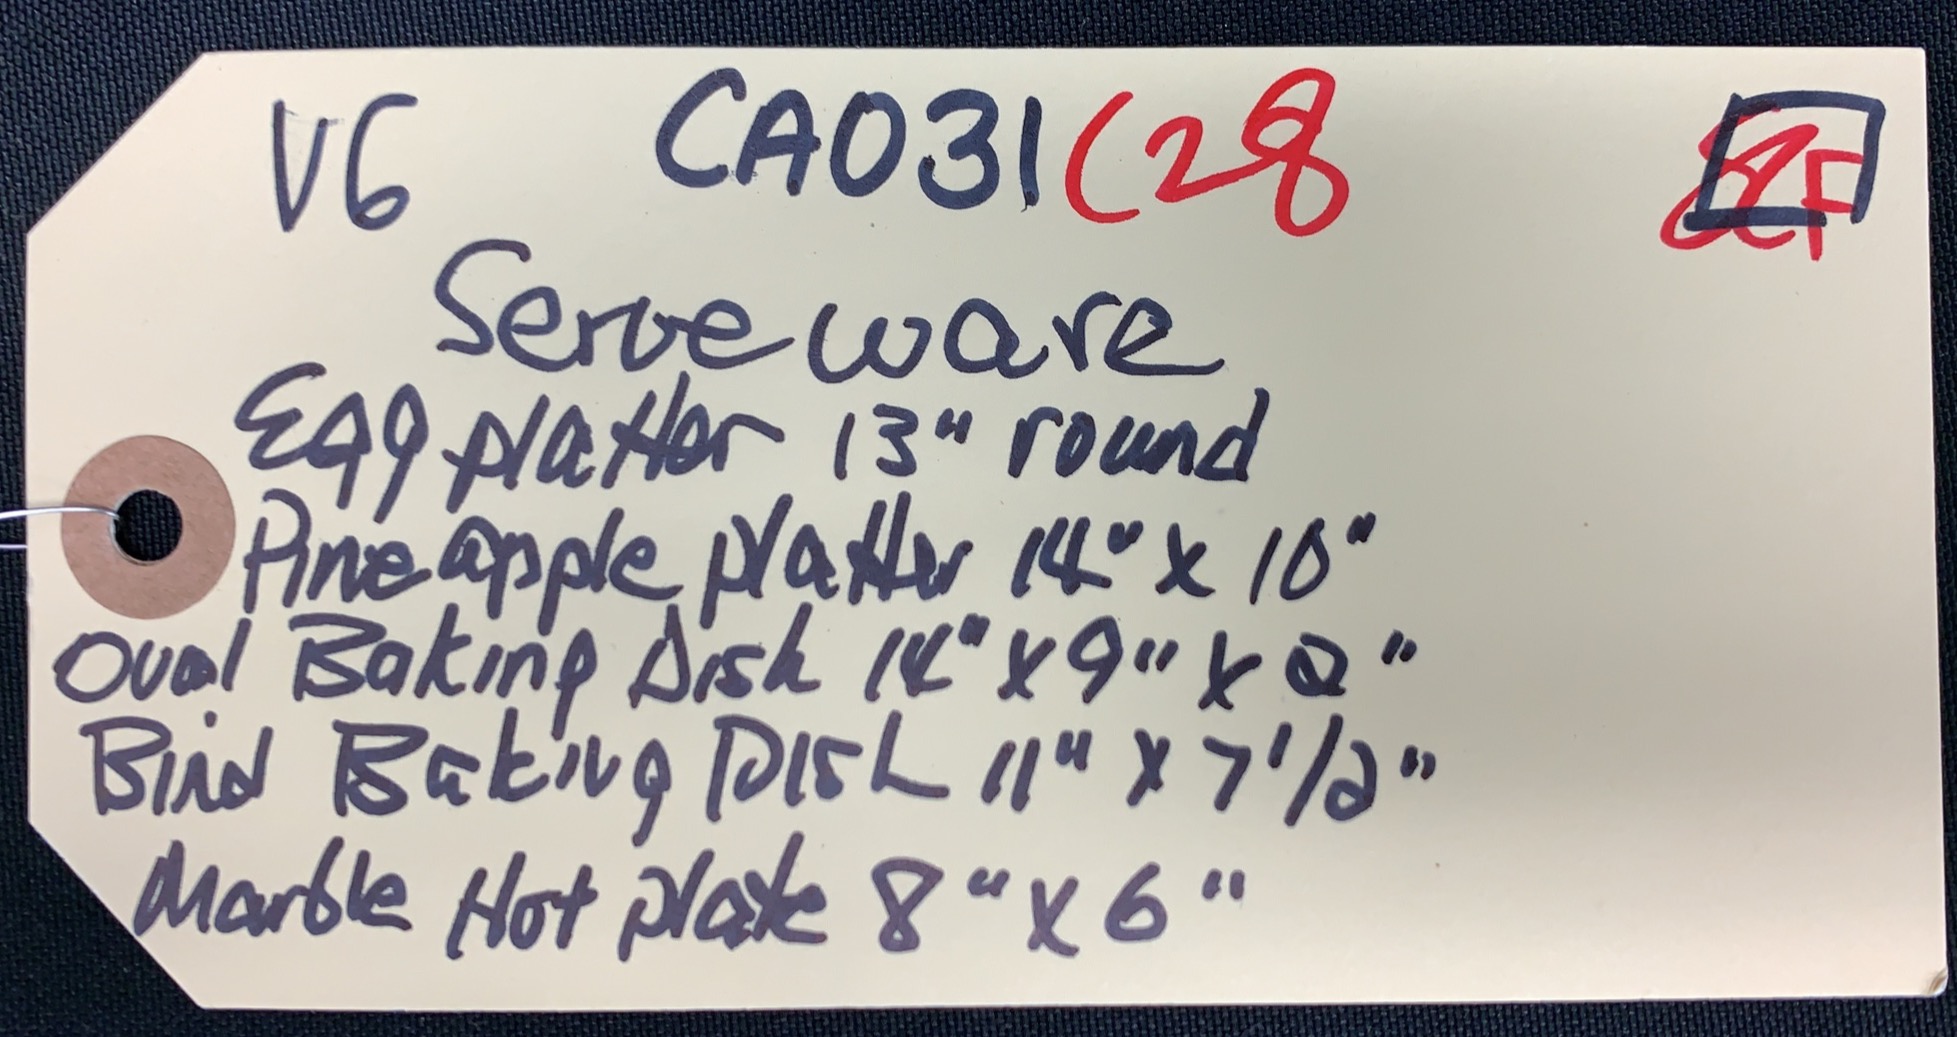 V6 CA031 C28
Serveware
Egg platter 13" round
Pineapple platter 14" x 10"
Oval Baking Dish 14" x 9" x 2"
Bird Baking Dish 11" x 7 1/2"
Marble Hot plate 8" x 6"